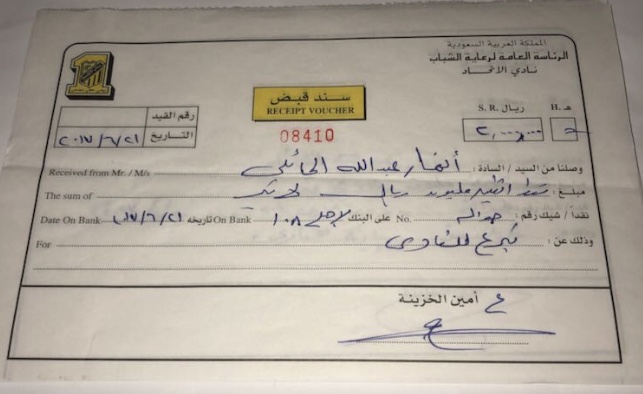 المملكة العربية السعودية
الرئاسة العامة لرعاية الشباب
نادي الاتحاد
سند قبض
RECEIPT VOUCHER
08410
ريال S. R.
هـ H.
٢,٠٠٠,٠٠٠
رقم القيد
التاريخ ٢٠١٧/٦/٢١
وصلنا من السيد / السادة : أنمار عبدالله الحائلي Received from Mr. / M/s
مبلغ : فقط اثنين مليون ريال لاغير The sum of
نقداً / شيك رقم : حوالة No. على البنك الراجحي On Bank تاريخه ٢٠١٧/٦/٢١ Date On Bank
وذلك عن : تبرع للنادي For
ع أمين الخزينة